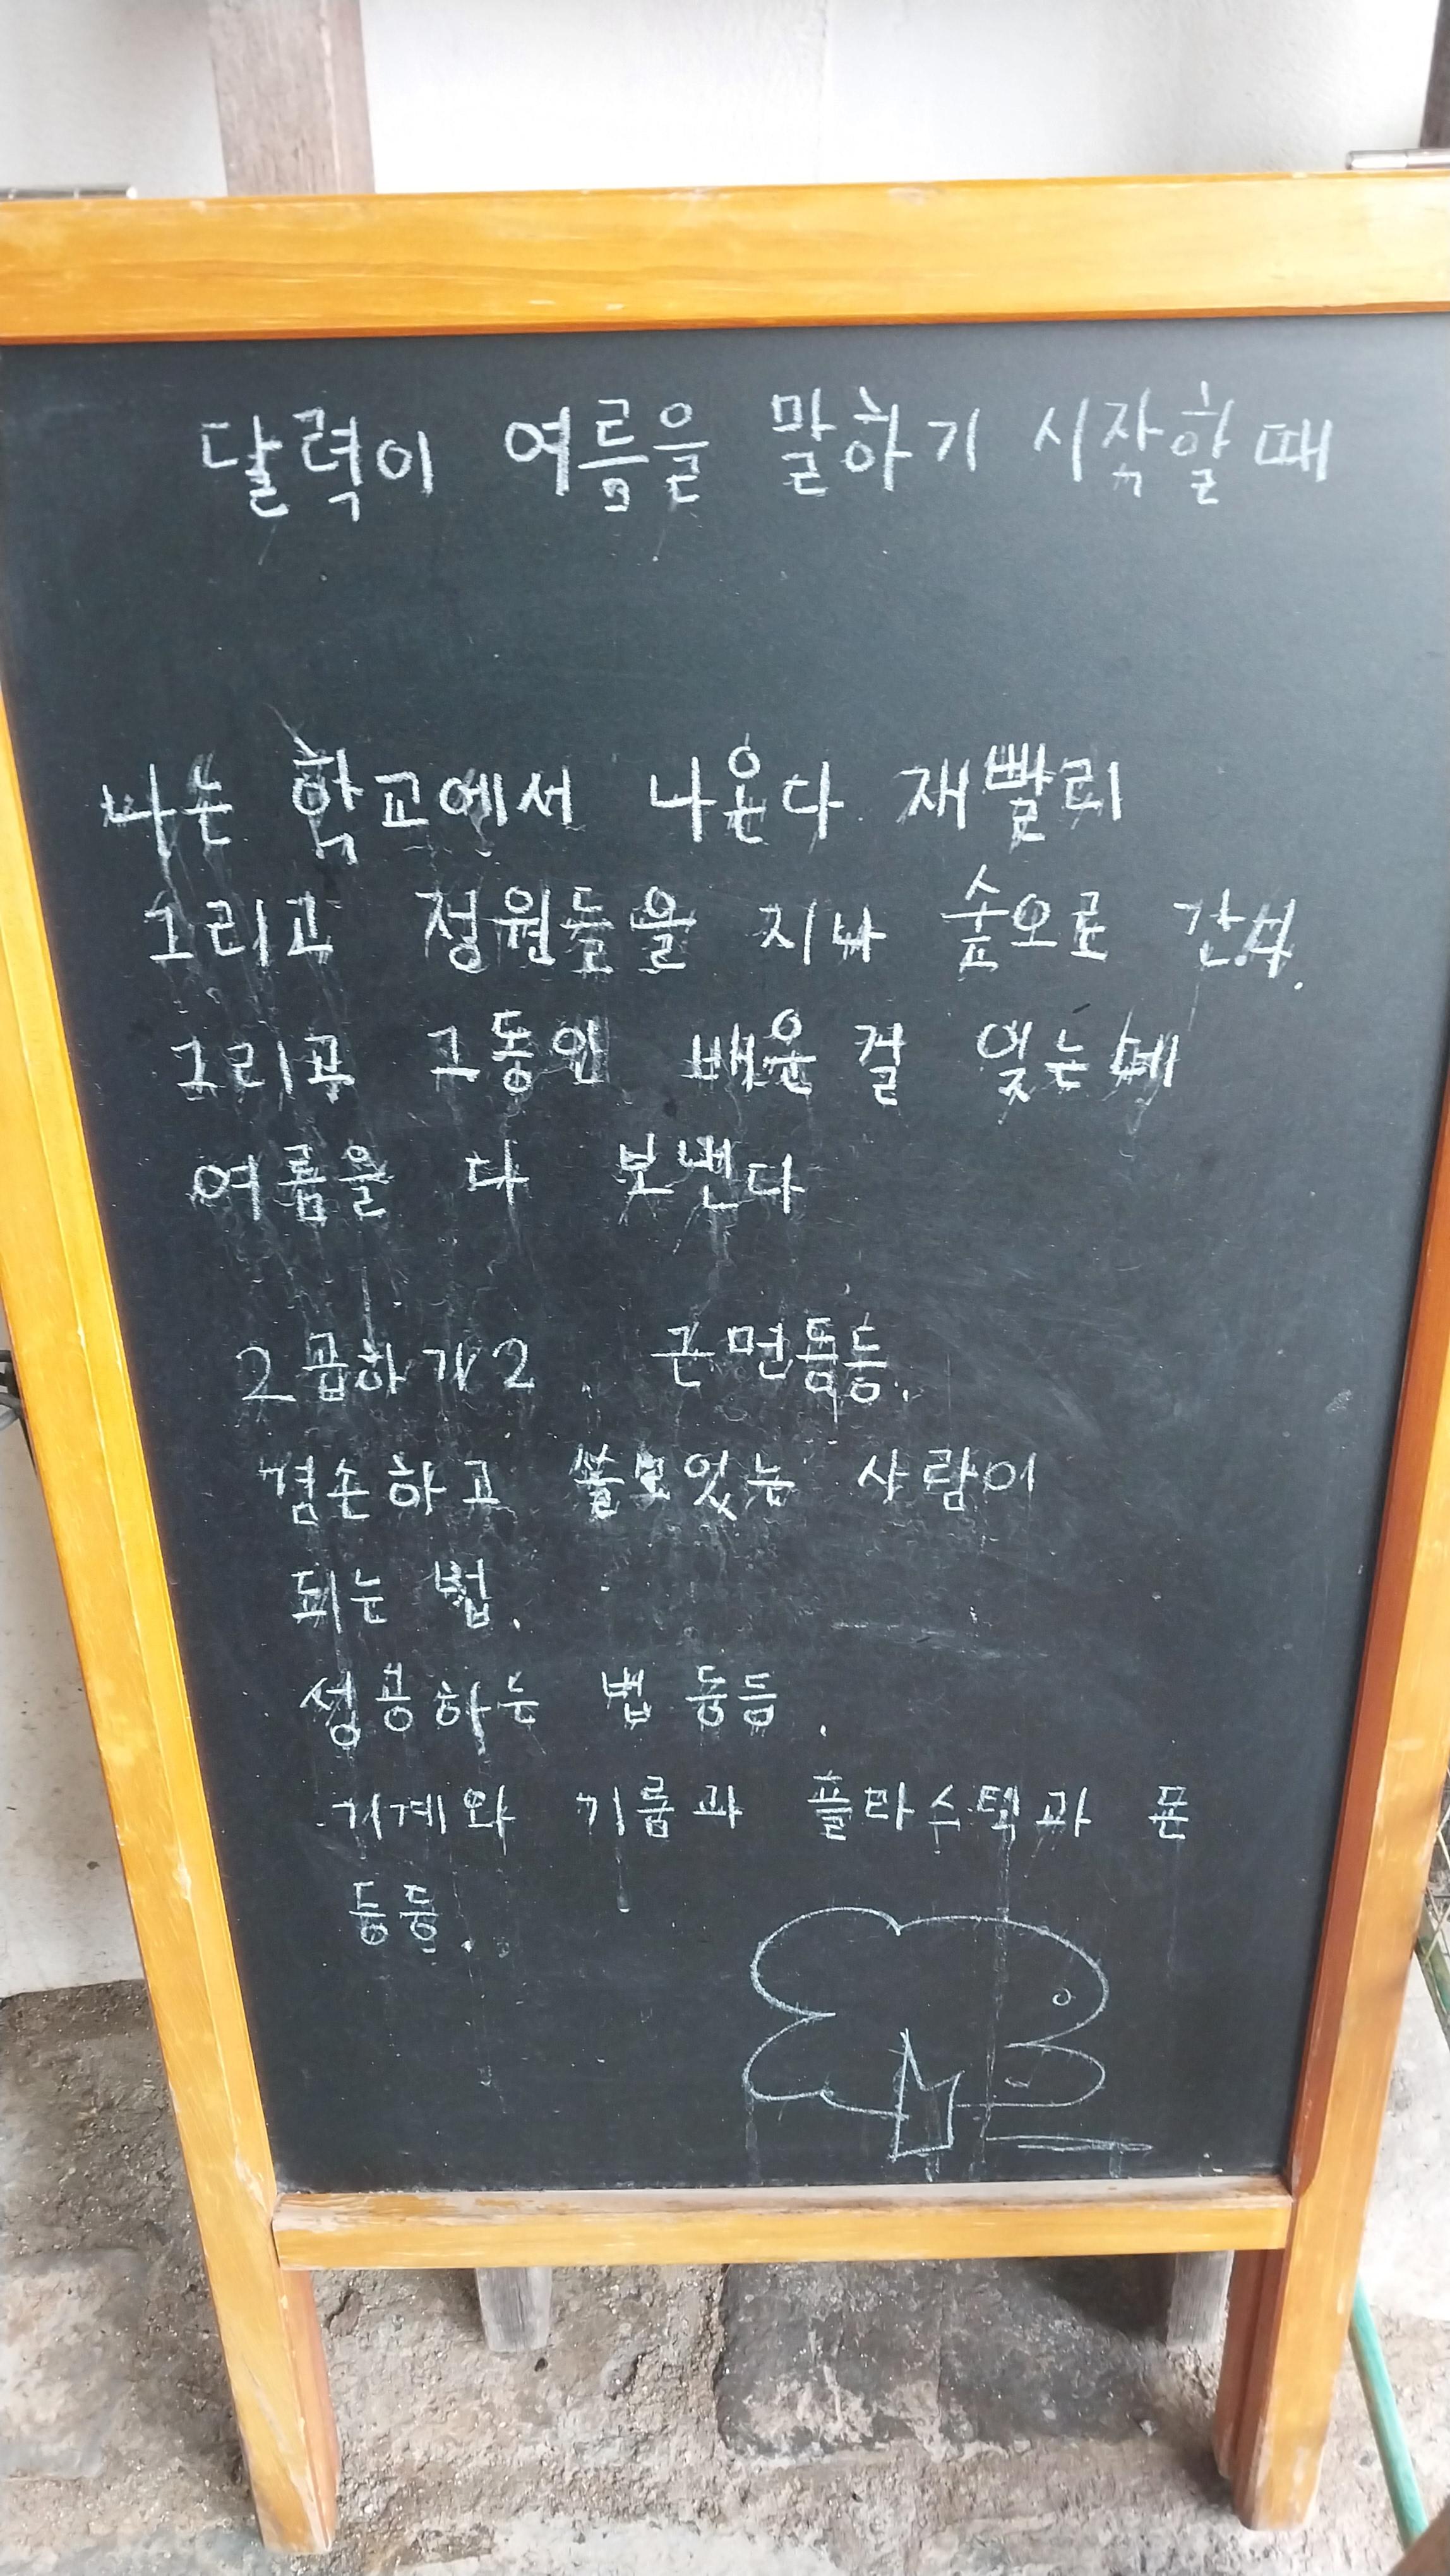 달력이 여름을 말하기 시작할 때
나는 학교에서 나온다 재빨리
그리고 정원들을 지나 숲으로 간다.
그리곤 그동안 배운 걸 잊는데
여름을 다 보낸다
2곱하기2. 근면등등.
겸손하고 쓸모있는 사람이
되는 법.
성공하는 법 등등.
기계와 기름과 플라스틱과 돈
등등.